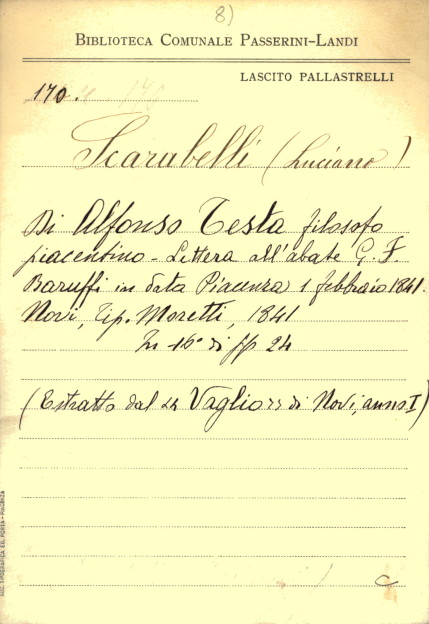 8)
BIBLIOTECA COMUNALE PASSERINI-LANDI
LASCITO PALLASTRELLI
170.
Scarabelli (Luciano)
Di Alfonso Testa filosofo
piacentino - Lettera all'abate G. F.
Baruffi in data Piacenza 1 febbraio 1841.
Novi, Tip. Moretti, 1841
In 16° di pp 24
(Estratto dal "Vaglio" di Novi, anno I)
C